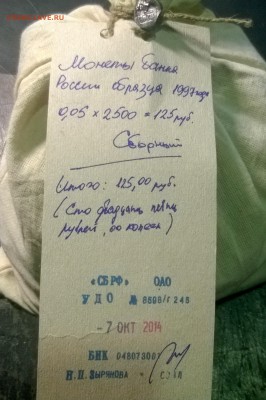 Монеты банка
России образца 1997 года
0,05 × 2500 = 125 руб.
Сборный
Итого: 125,00 руб.
(Сто двадцать пять
рублей, 00 копеек)
«СБРФ» ОАО
УДО № 8698/Г 248
-7 ОКТ 2014
БИК 04807300
И.П. Зырянова